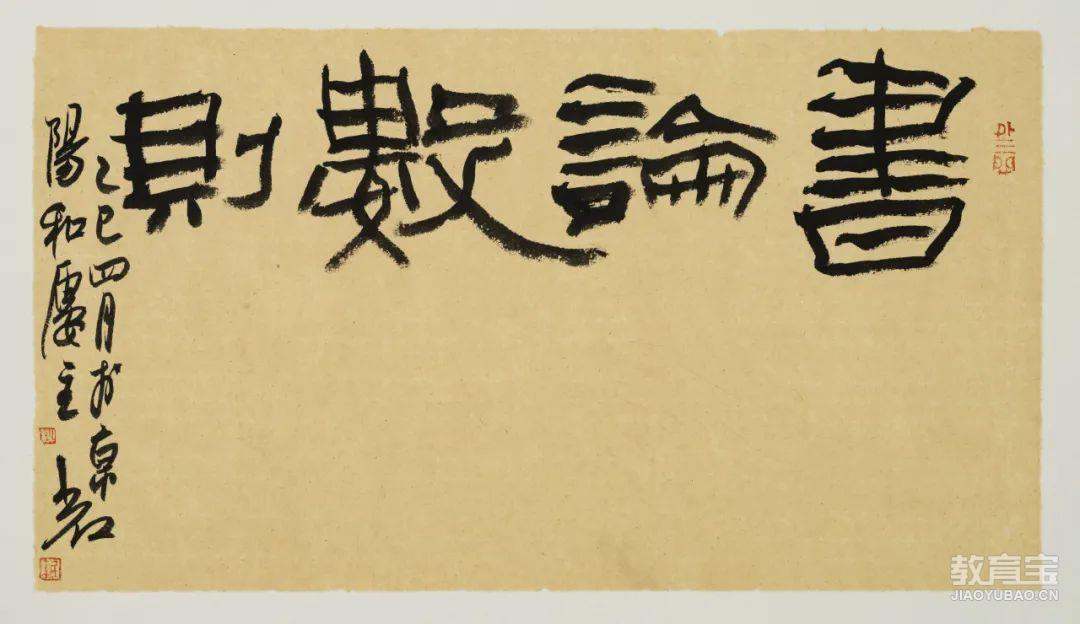 書論數則
乙巳四月於京
陽和廔主
教育宝
JIAOYUBAO.CN